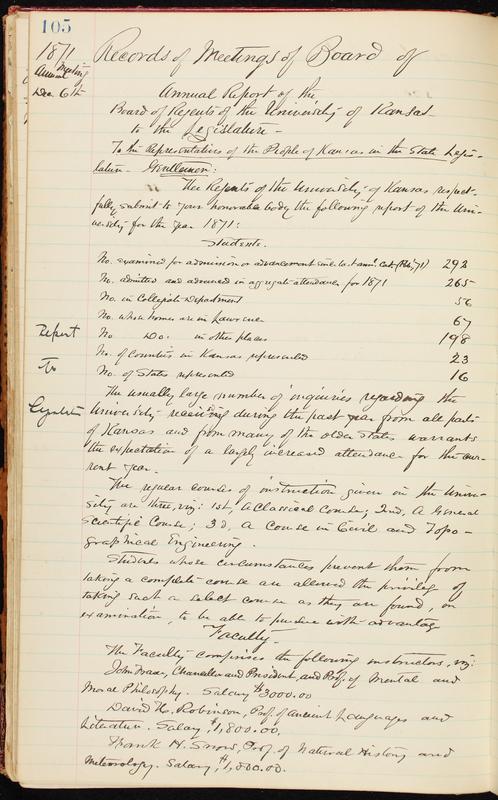 105
1871
Annual Meeting
Dec 6th
Records of Meetings of Board of
Annual Report of the
Board of Regents of the University of Kansas
to the Legislature —
To the Representatives of the People of Kansas in the State Legis-
lature — Gentlemen:
The Regents of the University of Kansas respect-
fully submit to your honorable body the following report of the Uni-
versity for the year 1871:
Students.
No. examined for admission or advancement since last ann. Cat. (Feb, 71) 292
No. admitted and advanced in aggregate attendance for 1871 265
No. in Collegiate Department 56
No. whose homes are in Lawrence 67
No Do: in other places 198
No. of Counties in Kansas represented 23
No. of States represented 16
Report
To
Legislature
The usually large number of inquiries regarding the
University received during the past year from all parts
of Kansas and from many of the older States warrants
the expectation of a largely increased attendance for the cur-
rent year.
The regular courses of instruction given in the Univer-
sity are three, viz: 1st, A Classical Course; 2nd. A General
Scientific Course; 3d, A Course in Civil and Topo-
graphical Engineering.
Students whose circumstances prevent them from
taking a complete course are allowed the privilege of
taking such a select course as they are found, on
examination, to be able to pursue with advantage
Faculty.
The Faculty comprises the following instructors, viz:
John Fraser, Chancellor and President, and Prof. of Mental and
Moral Philosophy. Salary $3000.00
David H. Robinson, Prof. of Ancient Languages and
Literature. Salary, $1,800.00.
Frank H. Snow, Prof. of Natural History and
Meteorology. Salary, $1,800.00.